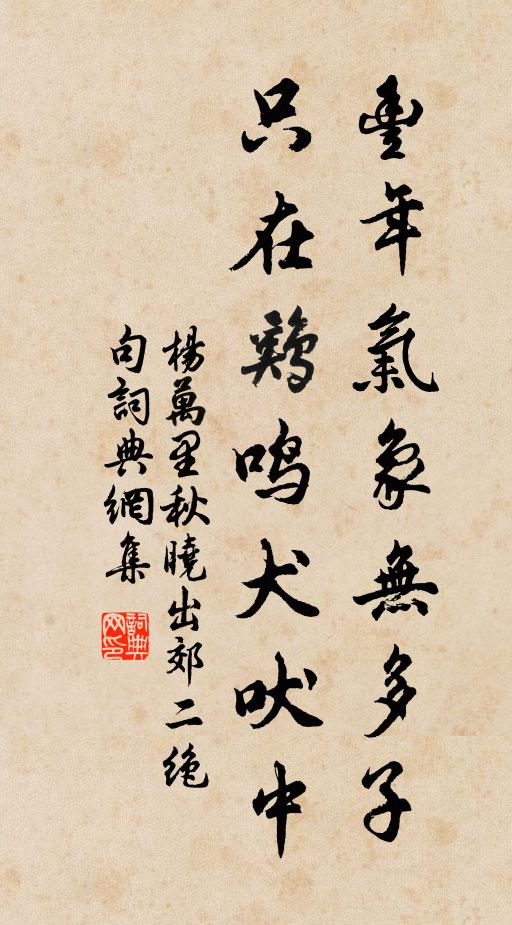 豐年氣象無多子
只在鷄鳴犬吠中
楊萬里秋曉出郊二絶
句詞典網集
詞典
网印